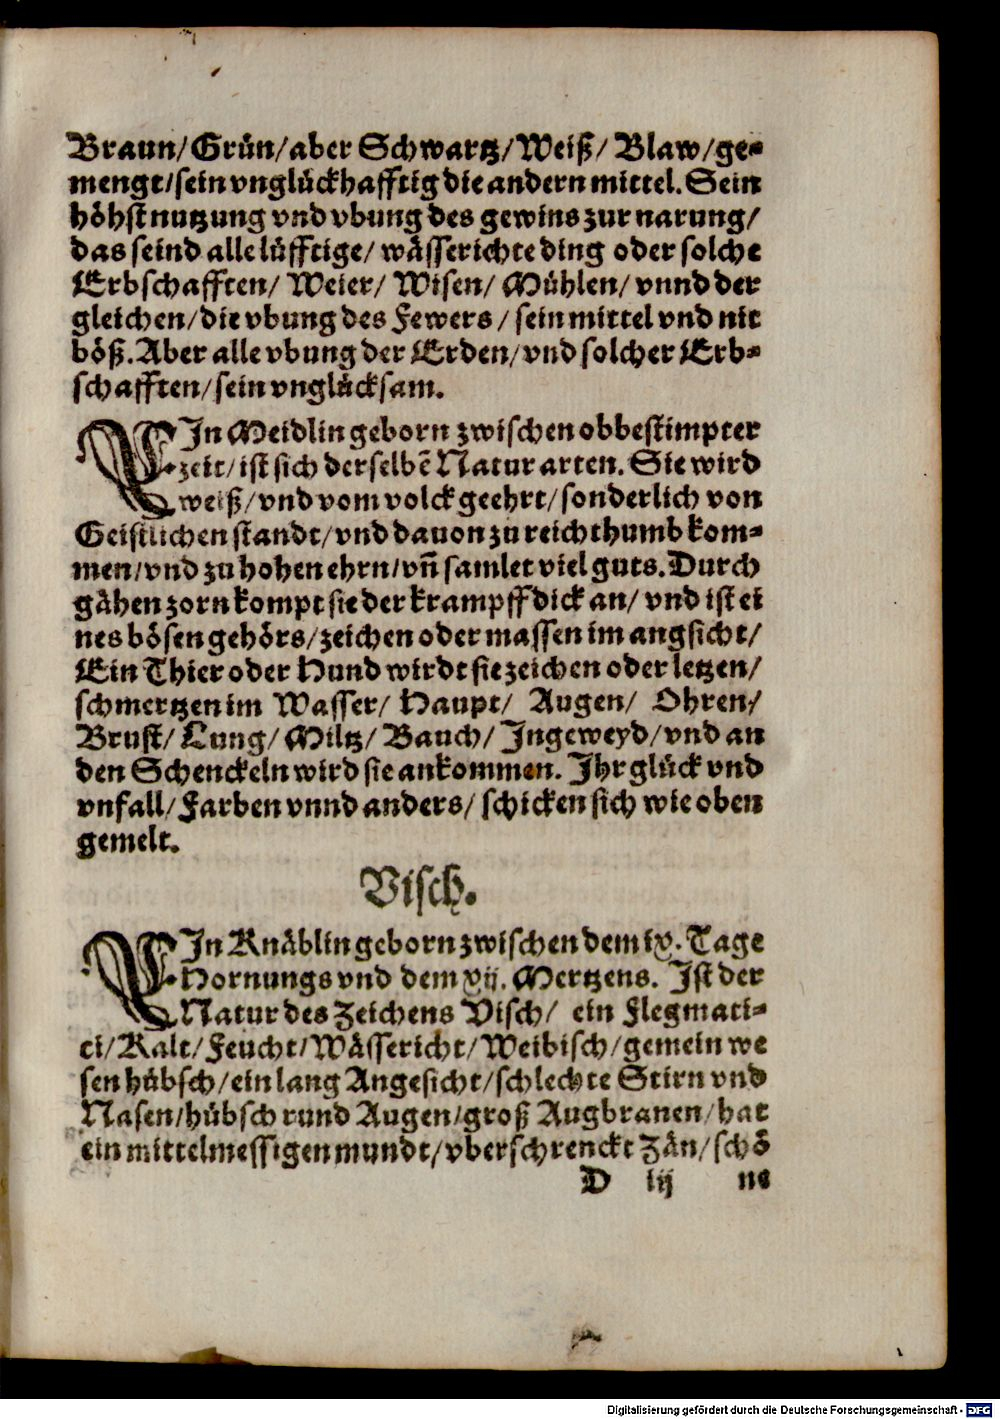 Braun/ Grün/ aber Schwartz/ Weiß/ Blaw/ ge-
mengt/ sein vnglückhafftig die andern mittel. Sein
höhst nutzung vnd vbung des gewins zur narung/
das seind alle lüfftige/ wässerichte ding oder solche
Erbschafften/ Weier/ Wisen/ Mühlen/ vnnd der
gleichen/ die vbung des Fewers/ sein mittel vnd nit
böß. Aber alle vbung der Erden/ vnd solcher Erb-
schafften/ sein vnglücksam.
EIn Meidlin geborn zwischen obbestimpter
zeit/ ist sich derselbẽ Natur arten. Sie wird
weiß/ vnd vom volck geehrt/ sonderlich von
Geistlichen standt/ vnd dauon zu reichthumb kom-
men/ vnd zu hohen ehrn/ vñ samlet viel guts. Durch
gähen zorn kompt sie der krampff dick an/ vnd ist ei
nes bösen gehörs/ zeichen oder massen im angsicht/
Ein Thier oder Hund wirdt sie zeichen oder letzen/
schmertzen im Wasser/ Haupt/ Augen/ Ohren/
Brust/ Lung/ Miltz/ Bauch/ Ingeweyd/ vnd an
den Schenckeln wird sie ankommen. Ihr glück vnd
vnfall/ Farben vnnd anders/ schicken sich wie oben
gemelt.
Visch.
EIn Knäblin geborn zwischen dem ix. Tage
Hornungs vnd dem xij. Mertzens. Ist der
Natur des Zeichens Visch/ ein Flegmati-
ci/ Kalt/ Feucht/ Wässericht/ Weibisch/ gemein we
sen hübsch/ ein lang Angesicht/ schlechte Stirn vnd
Nasen/ hübsch rund Augen/ groß Augbranen/ hat
ein mittelmessigen mundt/ vberschrenckt Zän/ schö
D iij ne
Digitalisierung gefördert durch die Deutsche Forschungsgemeinschaft - DFG